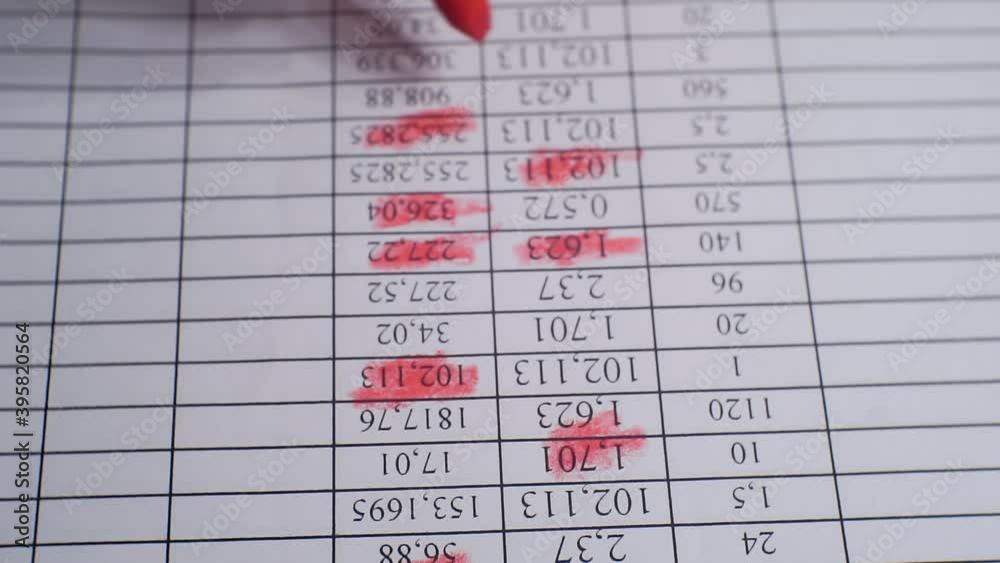 24 2,37 56,88
1,5 102,113 153,1695
10 1,701 17,01
1120 1,623 1817,76
1 102,113 102,113
20 1,701 34,02
96 2,37 227,52
140 1,623 227,22
570 0,572 326,04
2,5 102,113 255,2825
2,5 102,113 255,2825
560 1,623 908,88
3 102,113 306,339
20 1,701
Adobe Stock | #395820564
Adobe Stock